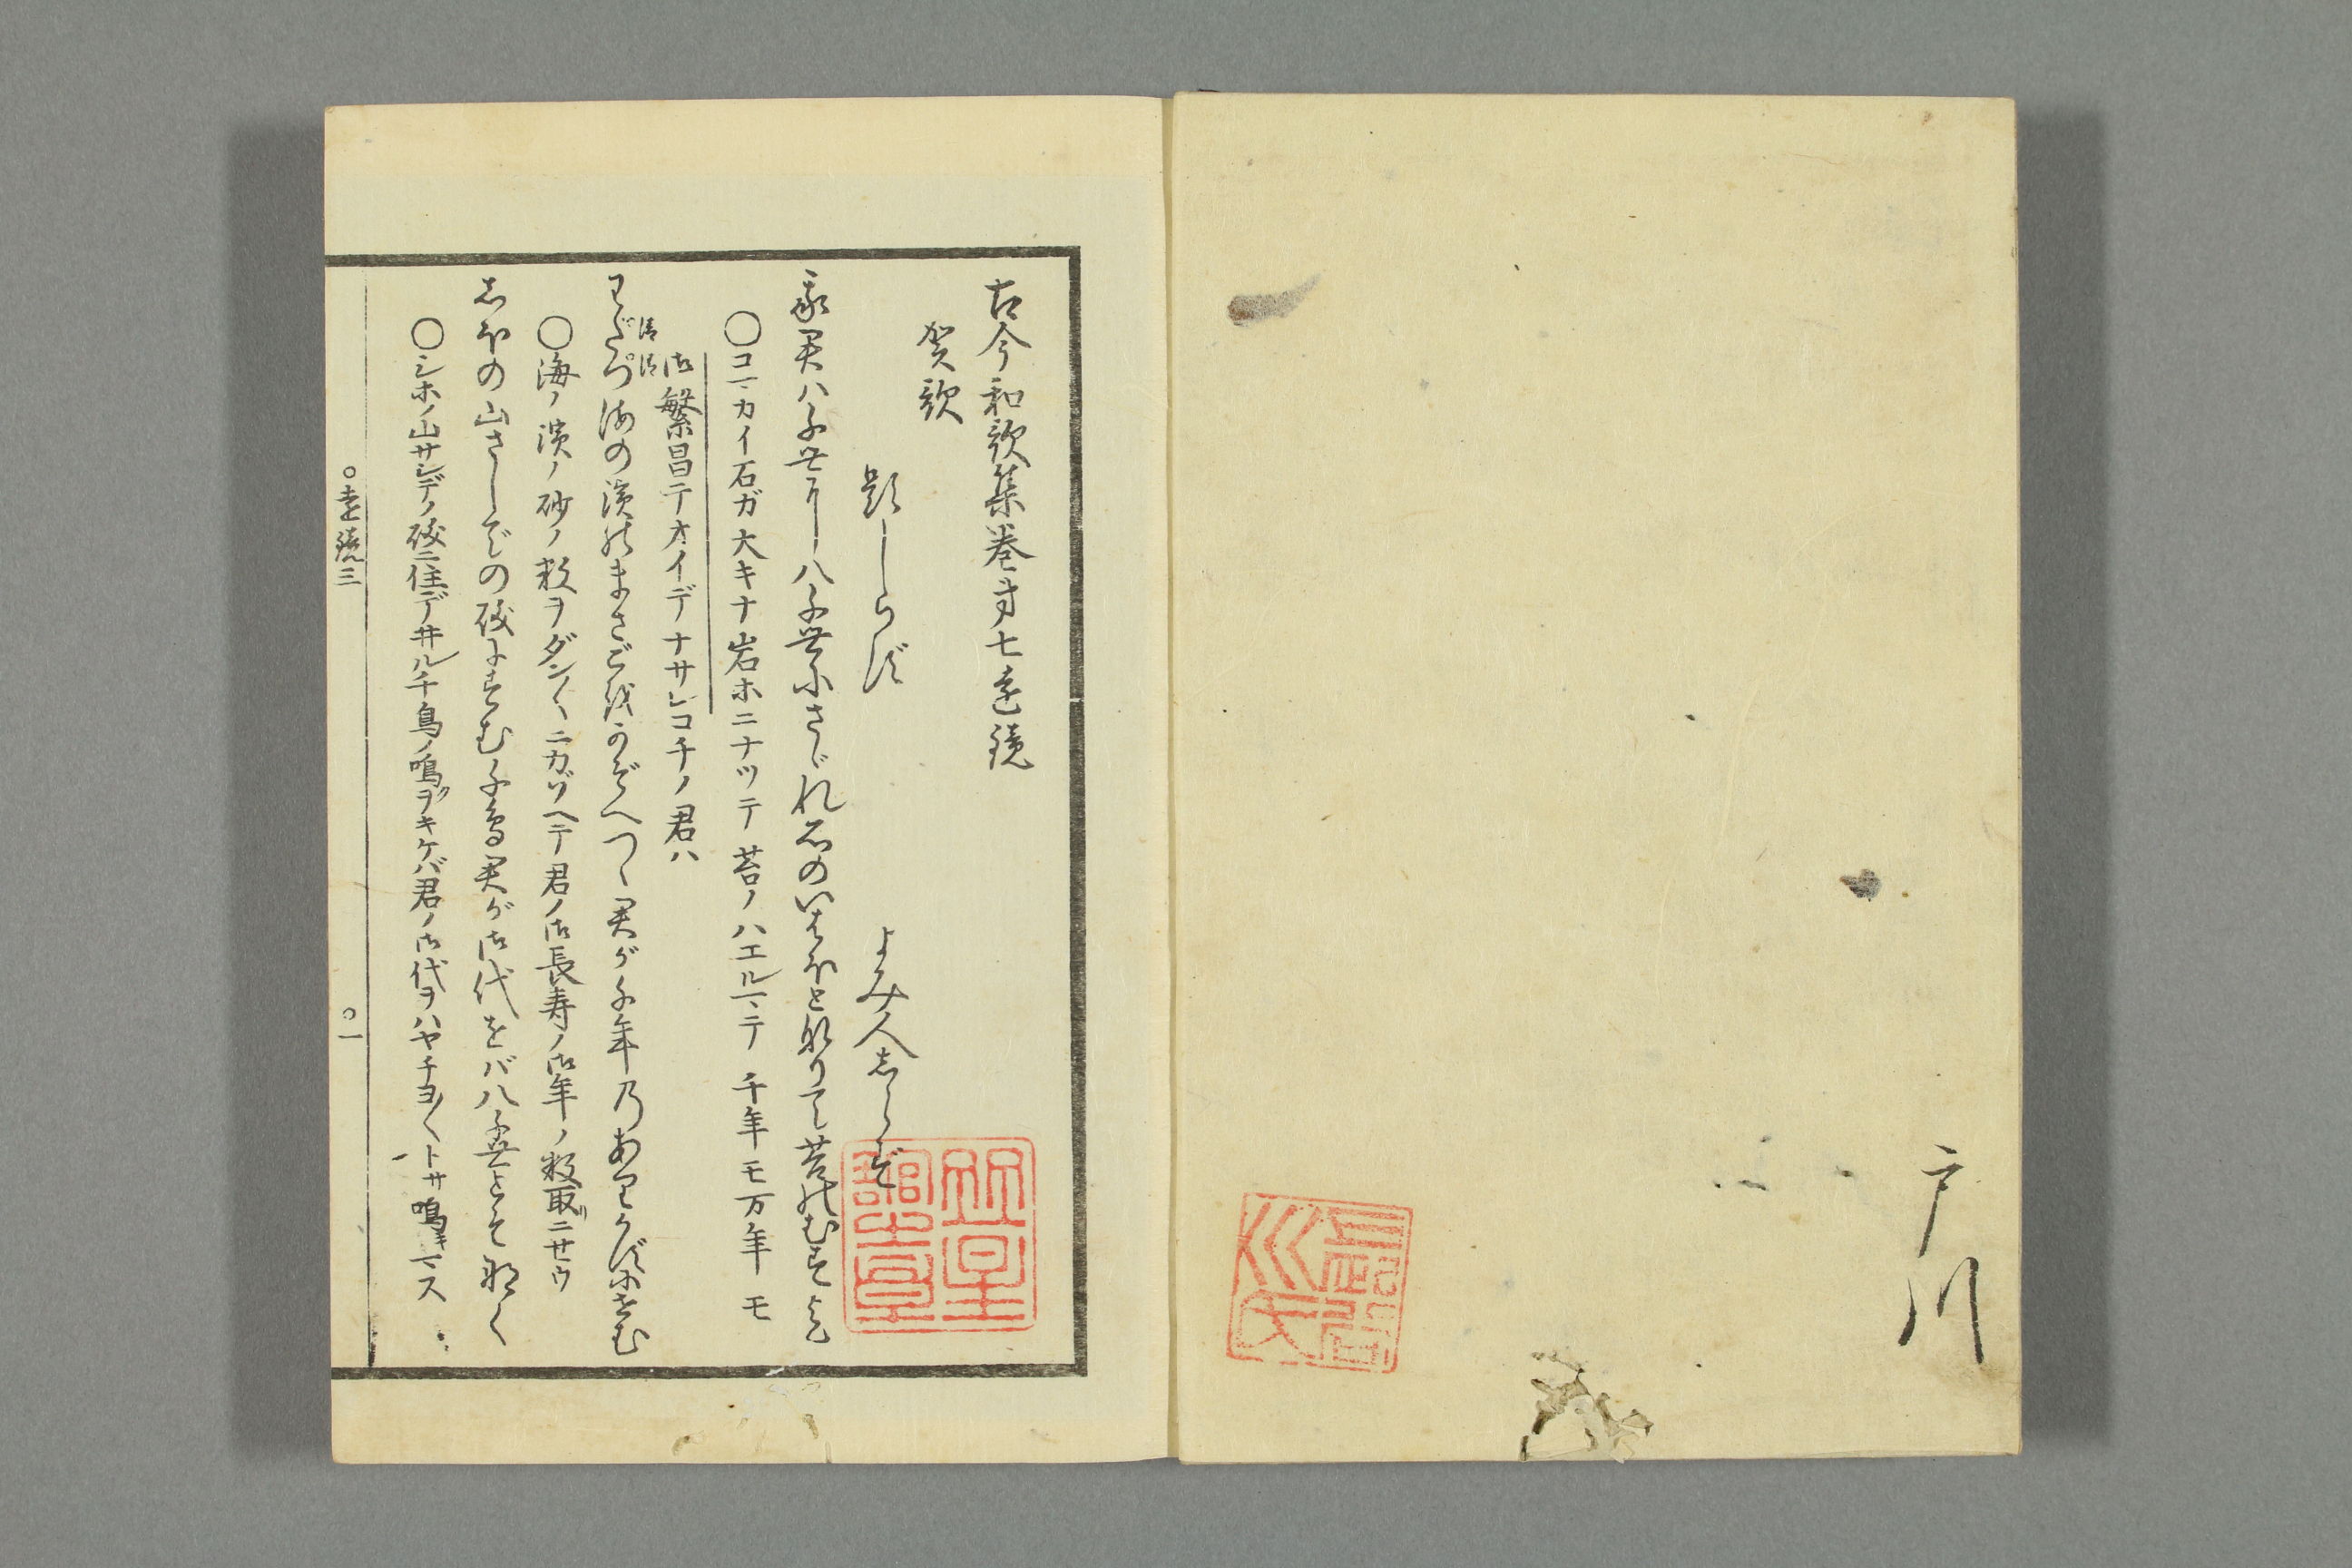 戸川
古今和歌集巻第七遠鏡
賀歌
題しらず
よみ人しらず
我君は千世にやちよにさゞれ石のいはほと成りて苔のむすまで
○コマカイ石ガ大キナ岩ホニナツテ苔ノハエルマデ千年モ万年モ
御繁昌デオイデナサレコチノ君ハ
わだづ海の濱のまさごをかぞへつゝ君が千年のありかずにせむ
清濁
○海ノ濱ノ砂ノ数ヲダン〱ニカゾヘテ君ノ御長寿ノ御年ノ数取ニセウ
しほの山さしでの磯にすむ千鳥君が御代をばやちよとぞ鳴く
○シホノ山サシデノ磯ニ住デ井ル千鳥ノ鳴クヲキケバ君ノ御代ヲハヤチヨ〱トサ鳴キマス
○遠鏡三
○一